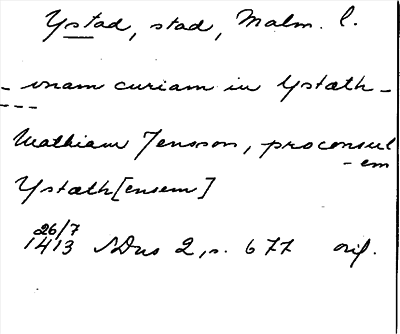 Ystad, stad, Malm. l.
- unam curiam in Ystath -
---
Mathiam Jensson, proconsul
-em
Ystath[ensem]
26/7
1413 SDns 2, s. 677 orig.